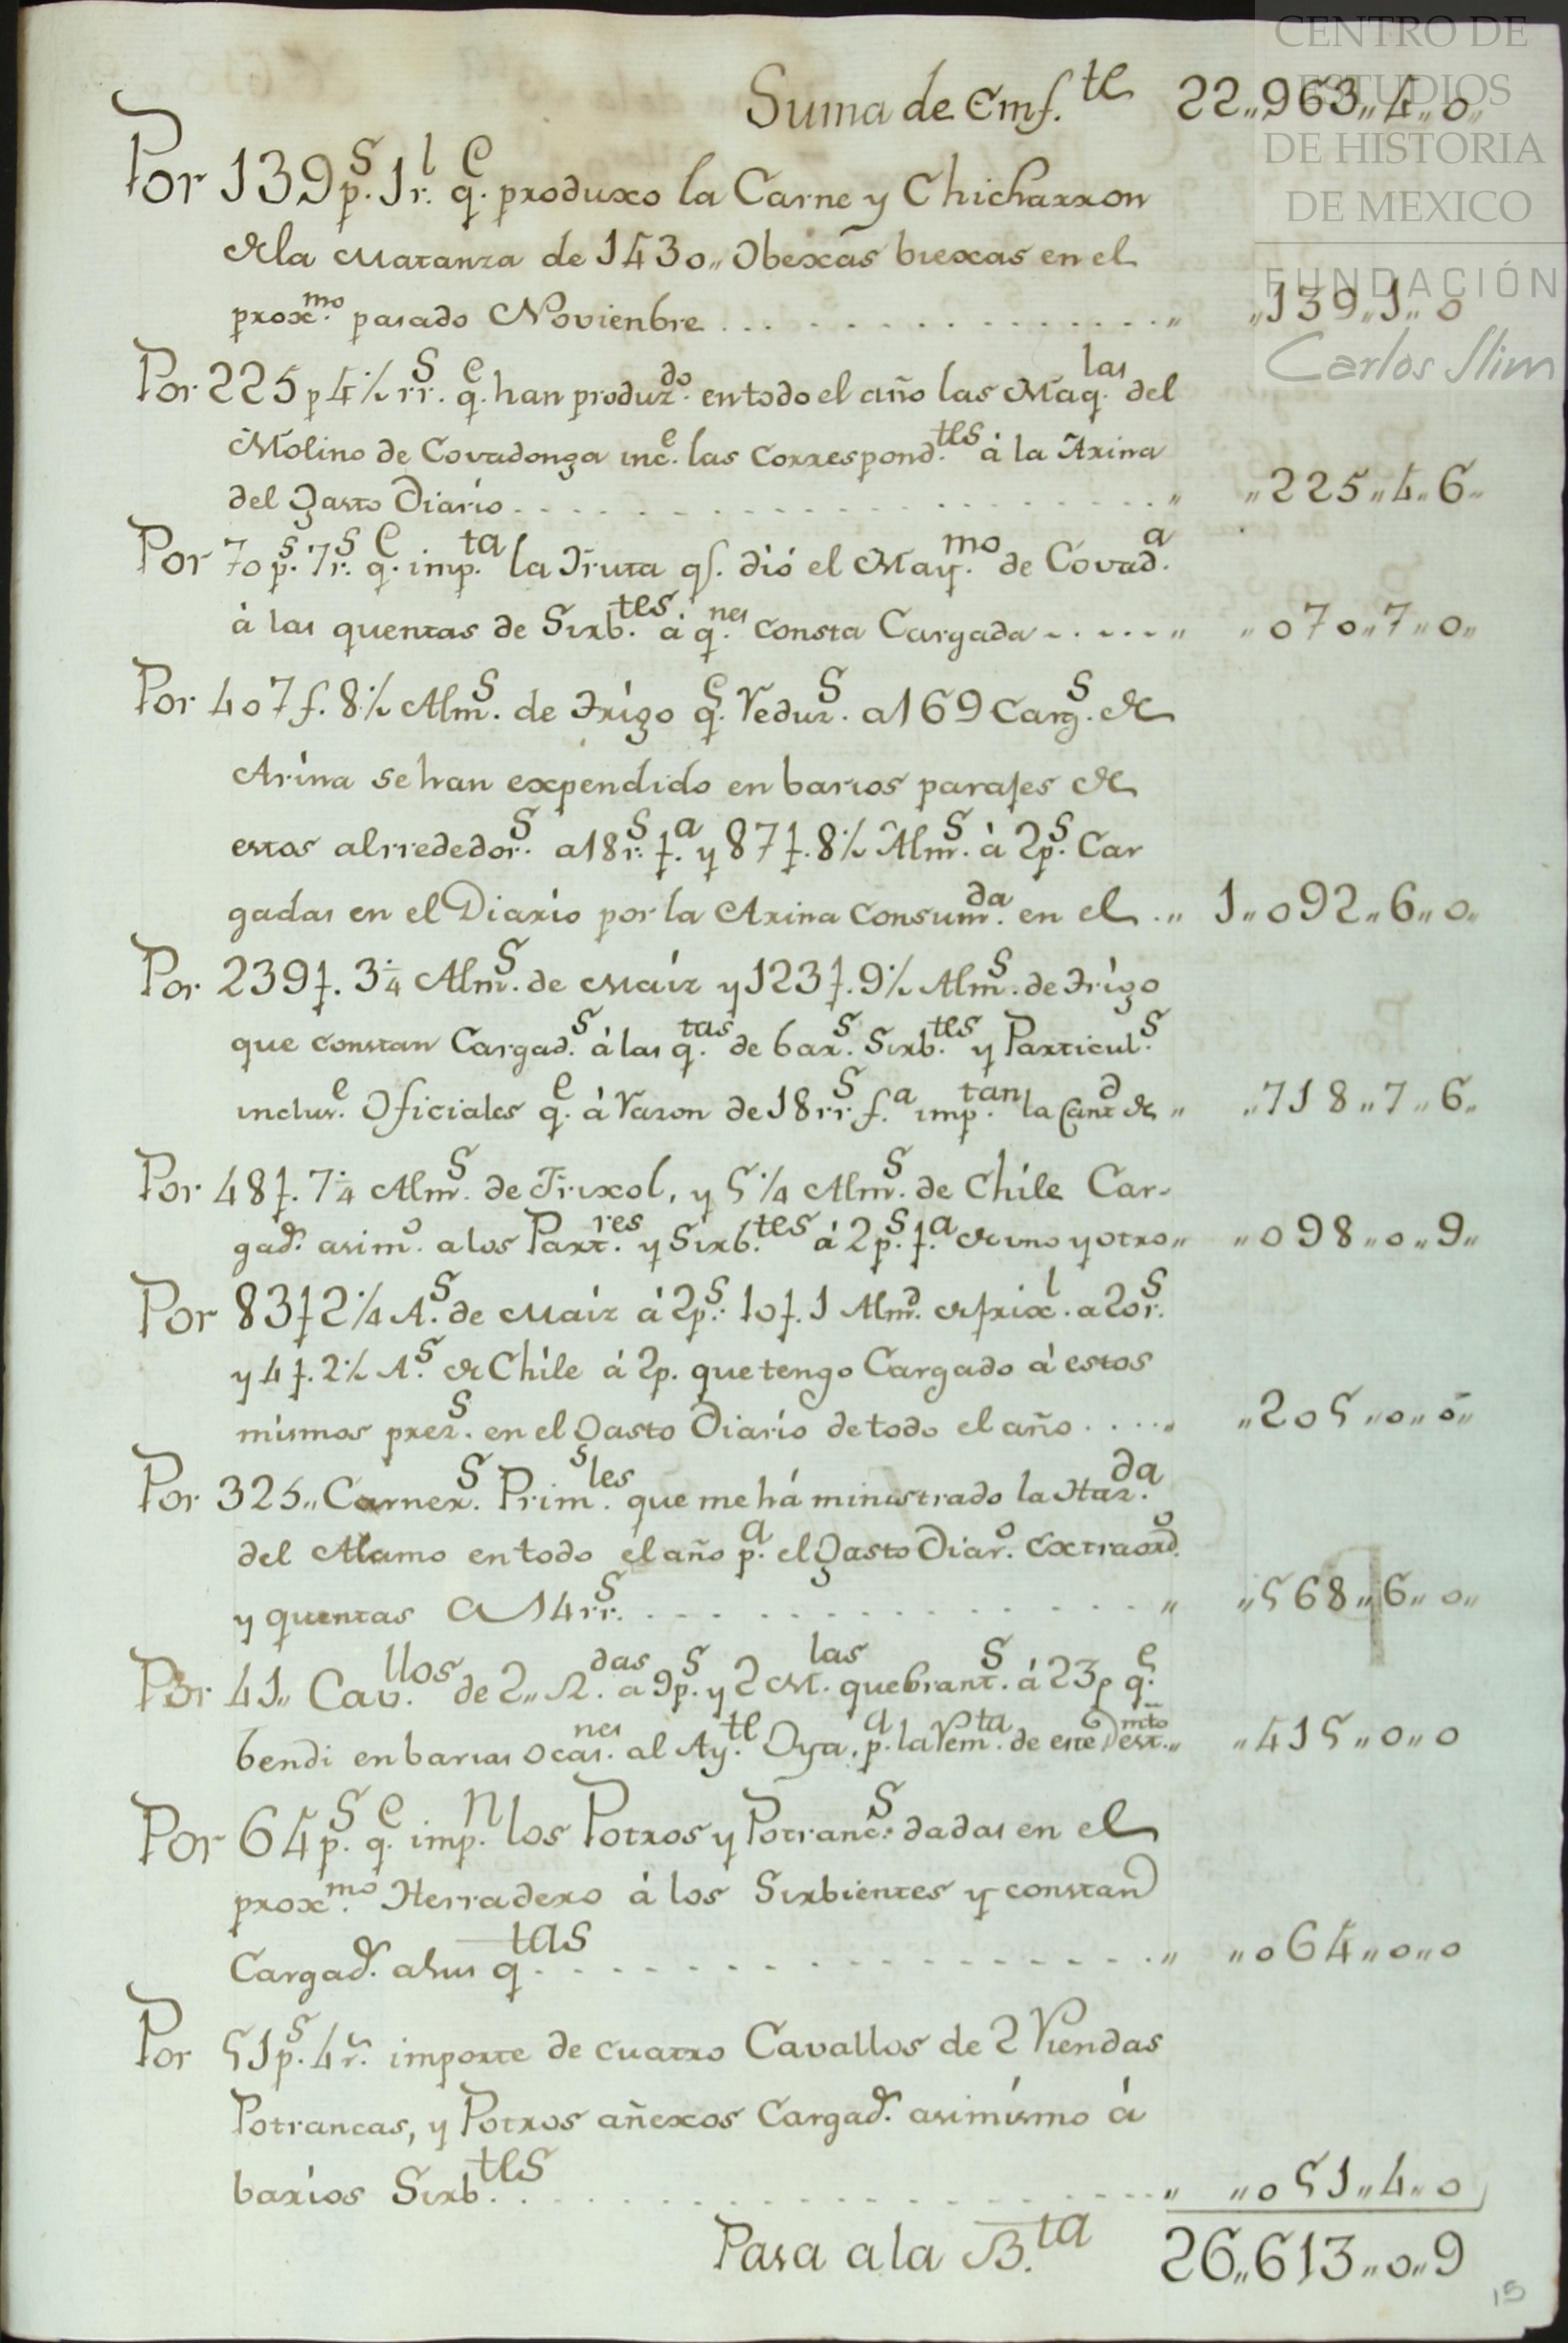 CENTRO DE
ESTUDIOS
DE HISTORIA
DE MEXICO
FUNDACIÓN
Carlos Slim
Suma de Emf.te 22,,963,,4,,0,,
Por 139 p.s 1 r.l q.e produxo la Carne y Chicharron
de la Matanza de 1430,, Obexas biexas en el
prox.mo pasado Novienbre ,,139,,1,,0
Por 225 p 4 1/2 rr.s q.e han produz.do en todo el año las Maq.las del
Molino de Covadonga inc.e las correspond.tes á la Arina
del Gasto Diario ,,225,,4,,6,,
Por 70 p.s 7 r.s q.e imp.ta la Fruta q.e dió el May.mo de Covad.a
á las quentas de Sirb.tes á q.nes consta Cargada ,,070,,7,,0,,
Por 407 f. 8 1/2 Alm.s de Trigo q.e Reduz.s a 169 Carg.s de
Arina se han expendido en barios parajes de
estos alrrededor.s a 18 r.s f.a y 87 f. 8 1/2 Alm.s á 2 p.s Car
gadas en el Diario por la Arina Consum.da en el 1,,092,,6,,0,,
Por 239 f. 3 1/4 Alm.s de Maiz y 123 f. 9 1/2 Alm.s de Trigo
que constan Cargad.s á las q.tas de bar.s Sirb.tes y Particul.s
inclus.e Oficiales q.e á Razon de 18 rr.s f.a imp.tan la Cant.d de ,,718,,7,,6,,
Por 48 f. 7 1/4 Alm.s de Frixol, y 5 1/4 Alm.s de Chile Car-
gad.s asim.o a los Part.res y Sirb.tes á 2 p.s f.a de uno y otro ,,098,,0,,9,,
Por 83 f 2 1/4 A.s de Maiz á 2 p.s 10 f. 1 Alm.d de frix.l a 20 r.s
y 4 f. 2 1/2 A.s de Chile á 2 p. que tengo Cargado á estos
mismos prez.s en el Gasto Diario de todo el año ,,205,,0,,0,,
Por 325,, Carner.s Prim.les que me há ministrado la Haz.da
del Alamo en todo el año p.a el Gasto Diar.o Extraord.o
y quentas a 14 rr.s ,,568,,6,,0,,
Por 41,, Cav.llos de 2,, R.das a 9 p.s y 2 M.las quebrant.s á 23 p q.e
bendi en barias ocas.nes al Ay.te Oya, p.a la Rem.ta de este Dest.mto ,,415,,0,,0
Por 64 p.s q.e imp.n los Potros y Potranc.s dadas en el
prox.mo Herradero á los Sirbientes y constan
Cargad.s a sus q.tas ,,064,,0,,0
Por 51 p.s 4 r.s importe de cuatro Cavallos de 2 Riendas
Potrancas, y Potros añexos Cargad.s asimismo á
barios Sirb.tes ,,051,,4,,0
Pasa a la B.ta 26,,613,,0,,9
15